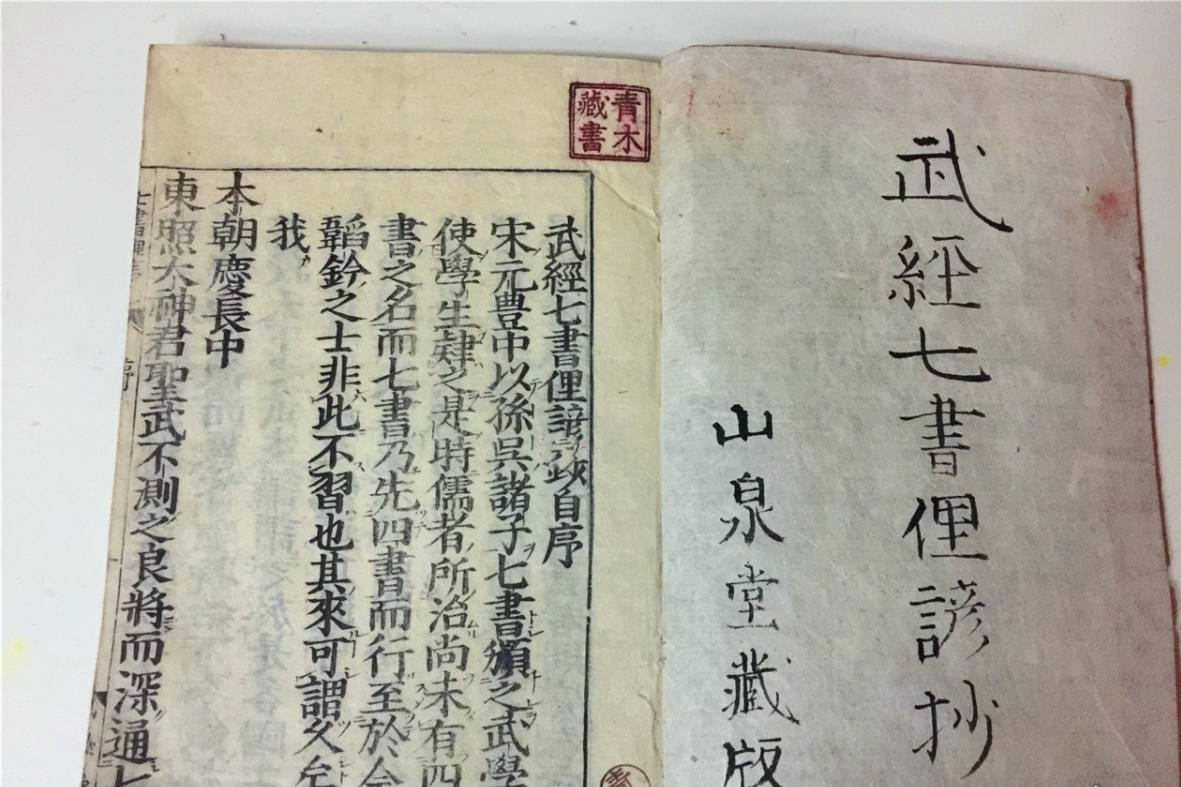 武經七書俚諺抄
山泉堂藏版
青木
藏書
武經七書俚諺自序
宋元豊中以孫吳諸子七書頒之武學
使學生肄之是時儒者所治尚未有四
書之名而七書乃先四書而行至於今
韜鈐之士非此不習也其來可謂久矣
我
本朝慶長中
東照大神君聖武不測之良將而深通七